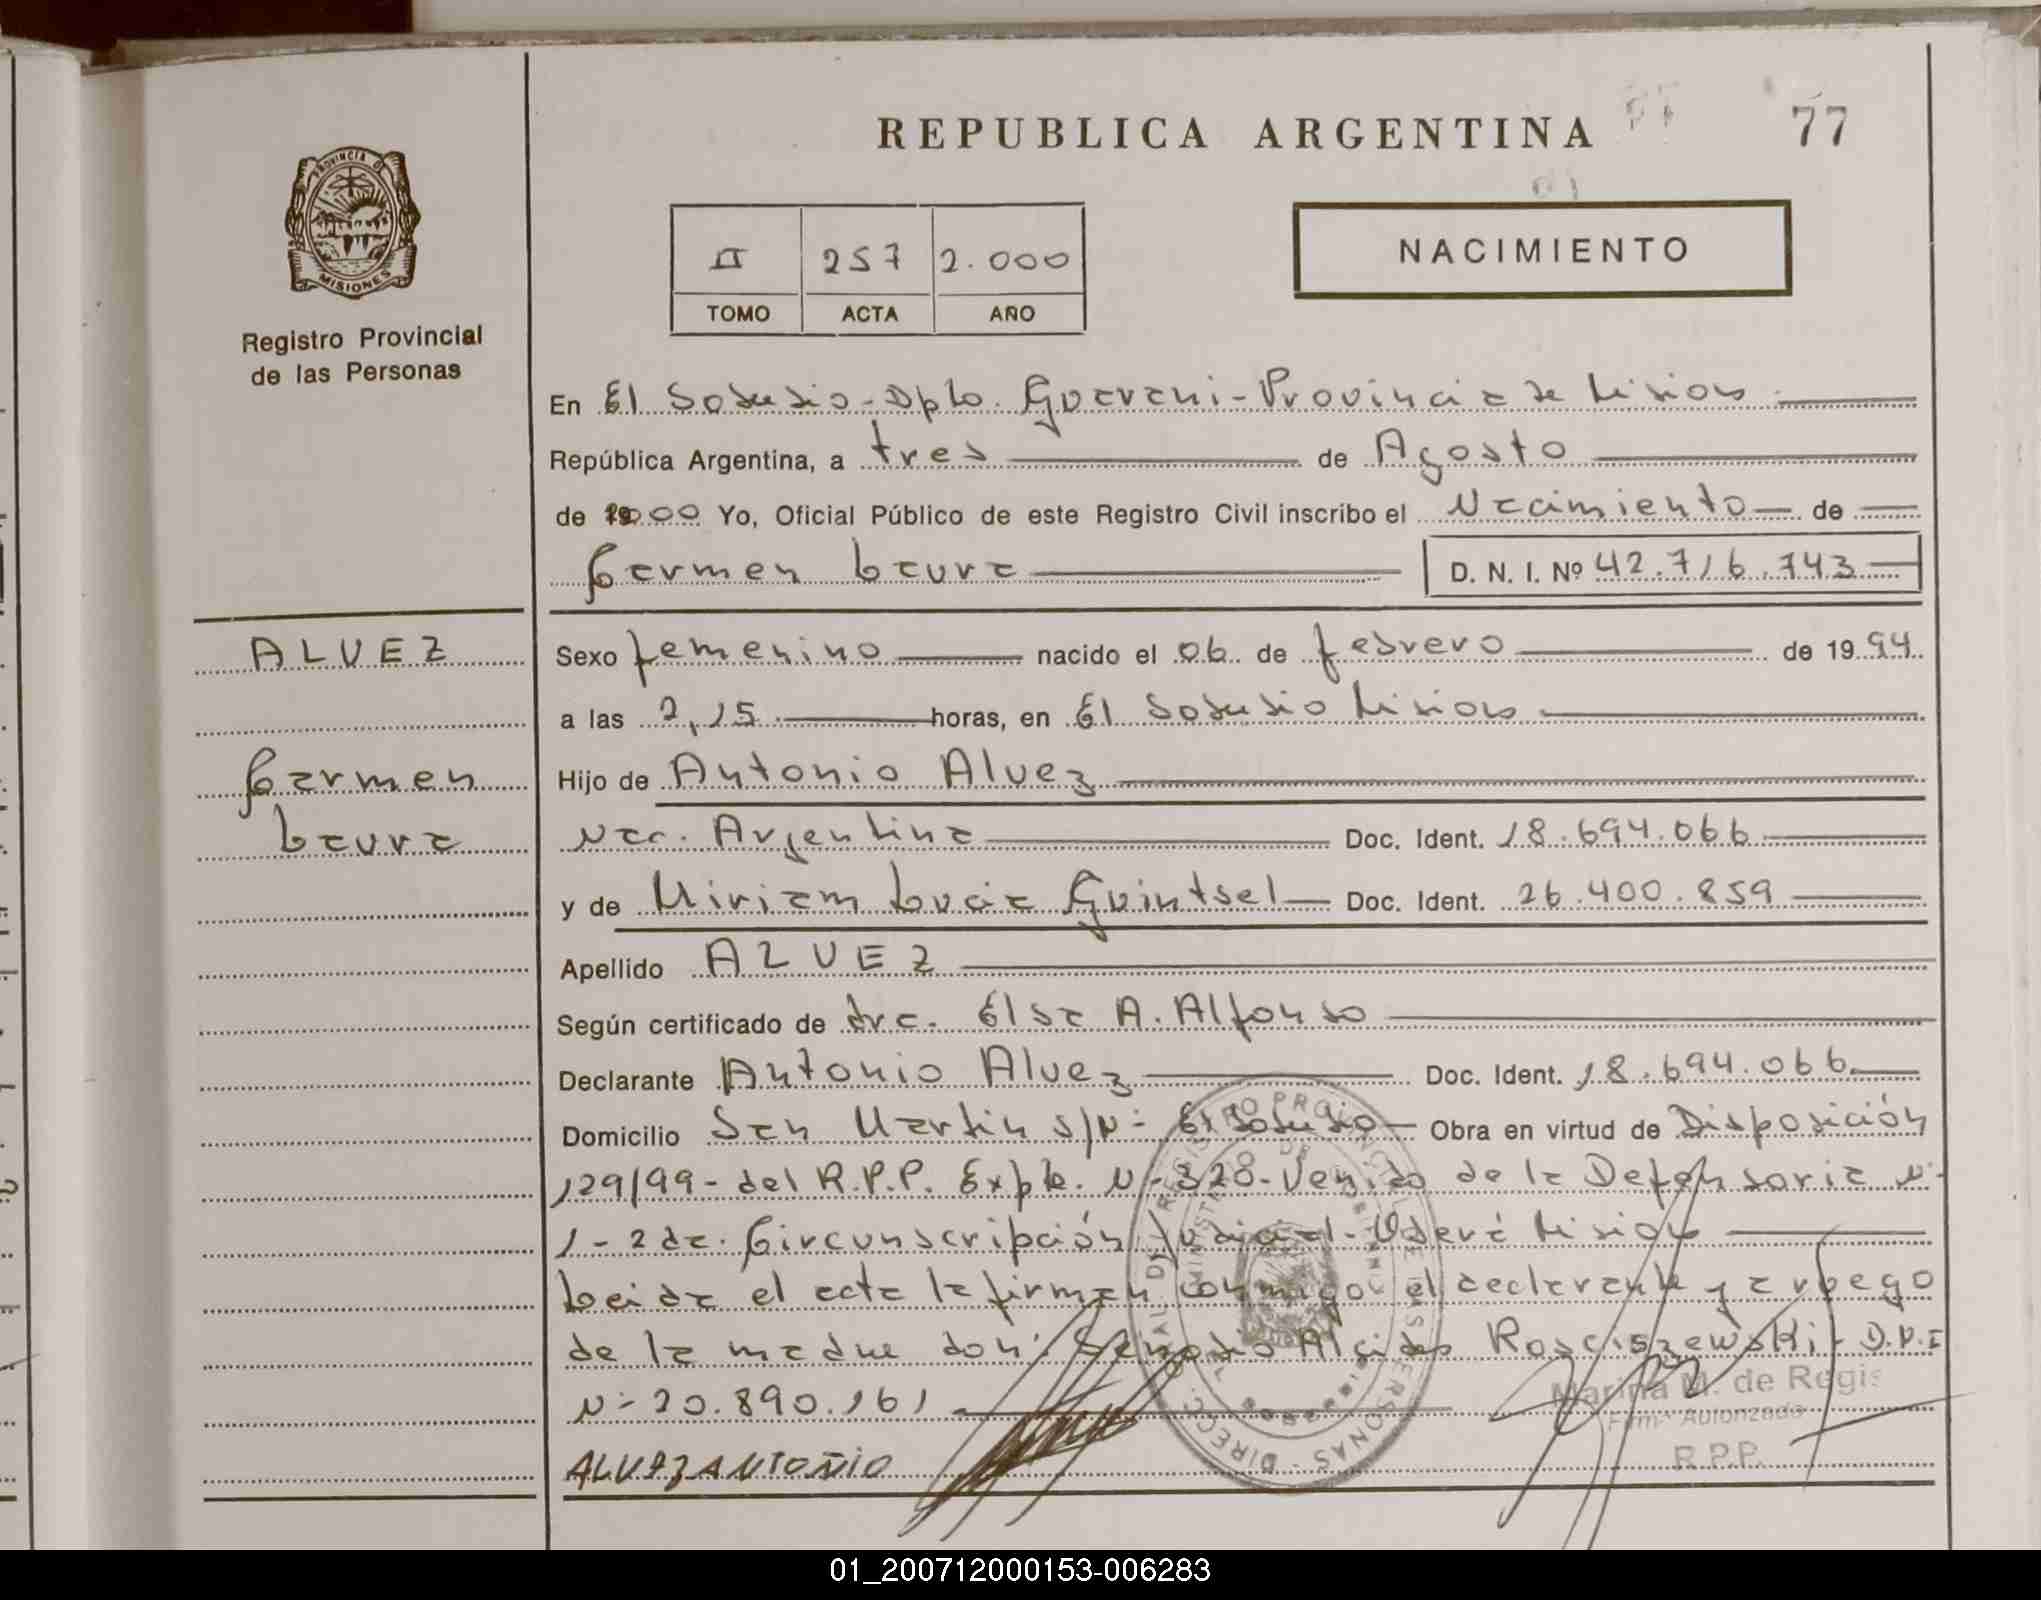 REPUBLICA ARGENTINA
77
PROVINCIA DE
MISIONES
Registro Provincial
de las Personas
II 257 2.000
TOMO ACTA AÑO
NACIMIENTO
En El Soberbio - Dpto. Guarani - Provincia de Misiones
República Argentina, a tres de Agosto
de 2000 Yo, Oficial Público de este Registro Civil inscribo el Nacimiento de
Carmen Laura D. N. I. Nº 42.716.743
ALVEZ
Carmen
Laura
Sexo femenino nacido el 06 de febrero de 1994
a las 2,15 horas, en El Soberbio Misiones
Hijo de Antonio Alvez
Nac. Argentina Doc. Ident. 18.694.066
y de Miriam Lucia Guintsel Doc. Ident. 26.400.859
Apellido ALVEZ
Según certificado de dra. Elsa A. Alfonso
Declarante Antonio Alvez Doc. Ident. 18.694.066
Domicilio San Martin s/N- El Soberbio Obra en virtud de Disposición
129/99- del R.P.P. Expte. N- 320- Venido de la Defensoria N-
1 - 2da. Circunscripción Judicial - Oberá Misiones
Leida el acta la firman conmigo el declarante y a ruego
de la madre don: Alcides Rosciszewski - D.N.I
N- 20.890.161
ALVEZ ANTONIO
Marina M. de Regis
Firma Autorizada
R.P.P.
01_200712000153-006283